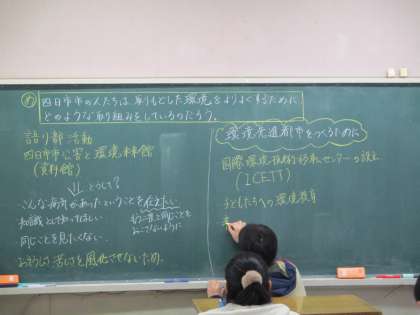 め 四日市市の人たちは、取りもどした環境をよりよくするために
どのような取り組みをしているのだろう。
語り部活動
四日市公害と環境未来館
(資料館)
どうして?
こんな病気があったということを伝えたい
知識として知ってほしい
もう二度と同じことを
おこさないように
同じことを見たくない。
苦しさを風化させないため。
環境先進都市をつくるために
国際環境技術移転センターの設立
(ICETT)
子どもたちへの環境教育